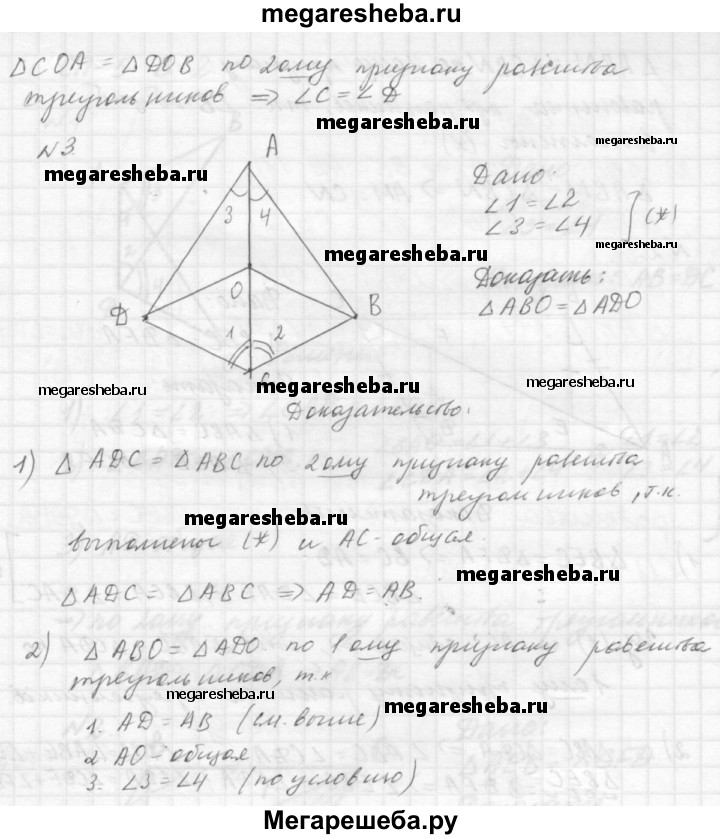 megaresheba.ru
△COA = △DOB по 2ому признаку равенства
треугольников ⇒ ∠C = ∠D
megaresheba.ru
N3.
megaresheba.ru
megaresheba.ru
A
3 4
Дано:
∠1 = ∠2
∠3 = ∠4
(*)
megaresheba.ru
megaresheba.ru
Доказать:
△ABO = △ADO
O
D
B
1 2
megaresheba.ru
megaresheba.ru
megaresheba.ru
Доказательство:
1) △ADC = △ABC по 2ому признаку равенства
треугольников, т.к.
megaresheba.ru
выполнены (*) и AC - общая.
megaresheba.ru
△ADC = △ABC ⇒ AD = AB.
2) △ABO = △ADO по 1ому признаку равенства
треугольников, т.к
megaresheba.ru
megaresheba.ru
1. AD = AB (см. выше)
2 AO - общая
3. ∠3 = ∠4 (по условию)
Мегарешеба.ру